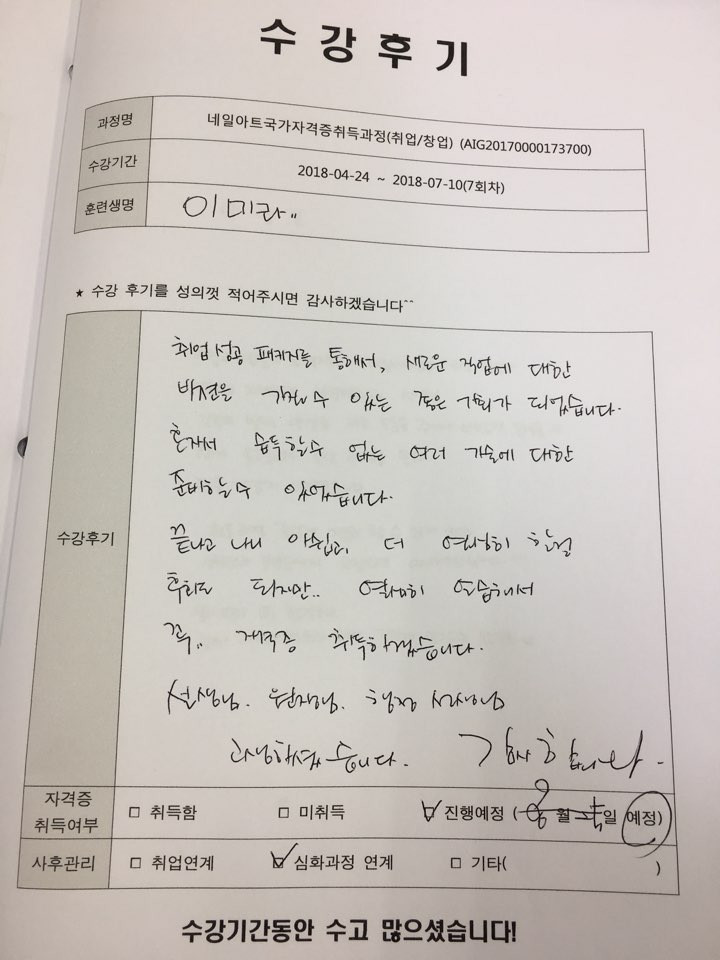 수 강 후 기
과정명 네일아트국가자격증취득과정(취업/창업) (AIG20170000173700)
수강기간 2018-04-24 ~ 2018-07-10(7회차)
훈련생명 이미라..
★ 수강 후기를 성의껏 적어주시면 감사하겠습니다^^
수강후기
취업성공 패키지를 통해서, 새로운 직업에 대한
비젼을 가질수 있는 좋은 기회가 되었습니다.
혼자서 습득할수 없는 여러 기술에 대한
준비할수 있었습니다.
끝나고 나니 아쉽고, 더 열심히 할걸
후회도 되지만.. 열심히 연습해서
꼭.. 자격증 취득하겠습니다.
선생님. 원장님. 행정 선생님
고생하셨습니다. 감사합니다.
자격증 취득여부 □ 취득함 □ 미취득 ☑ 진행예정 ( 월 일 예정)
사후관리 □ 취업연계 ☑ 심화과정 연계 □ 기타( )
수강기간동안 수고 많으셨습니다!